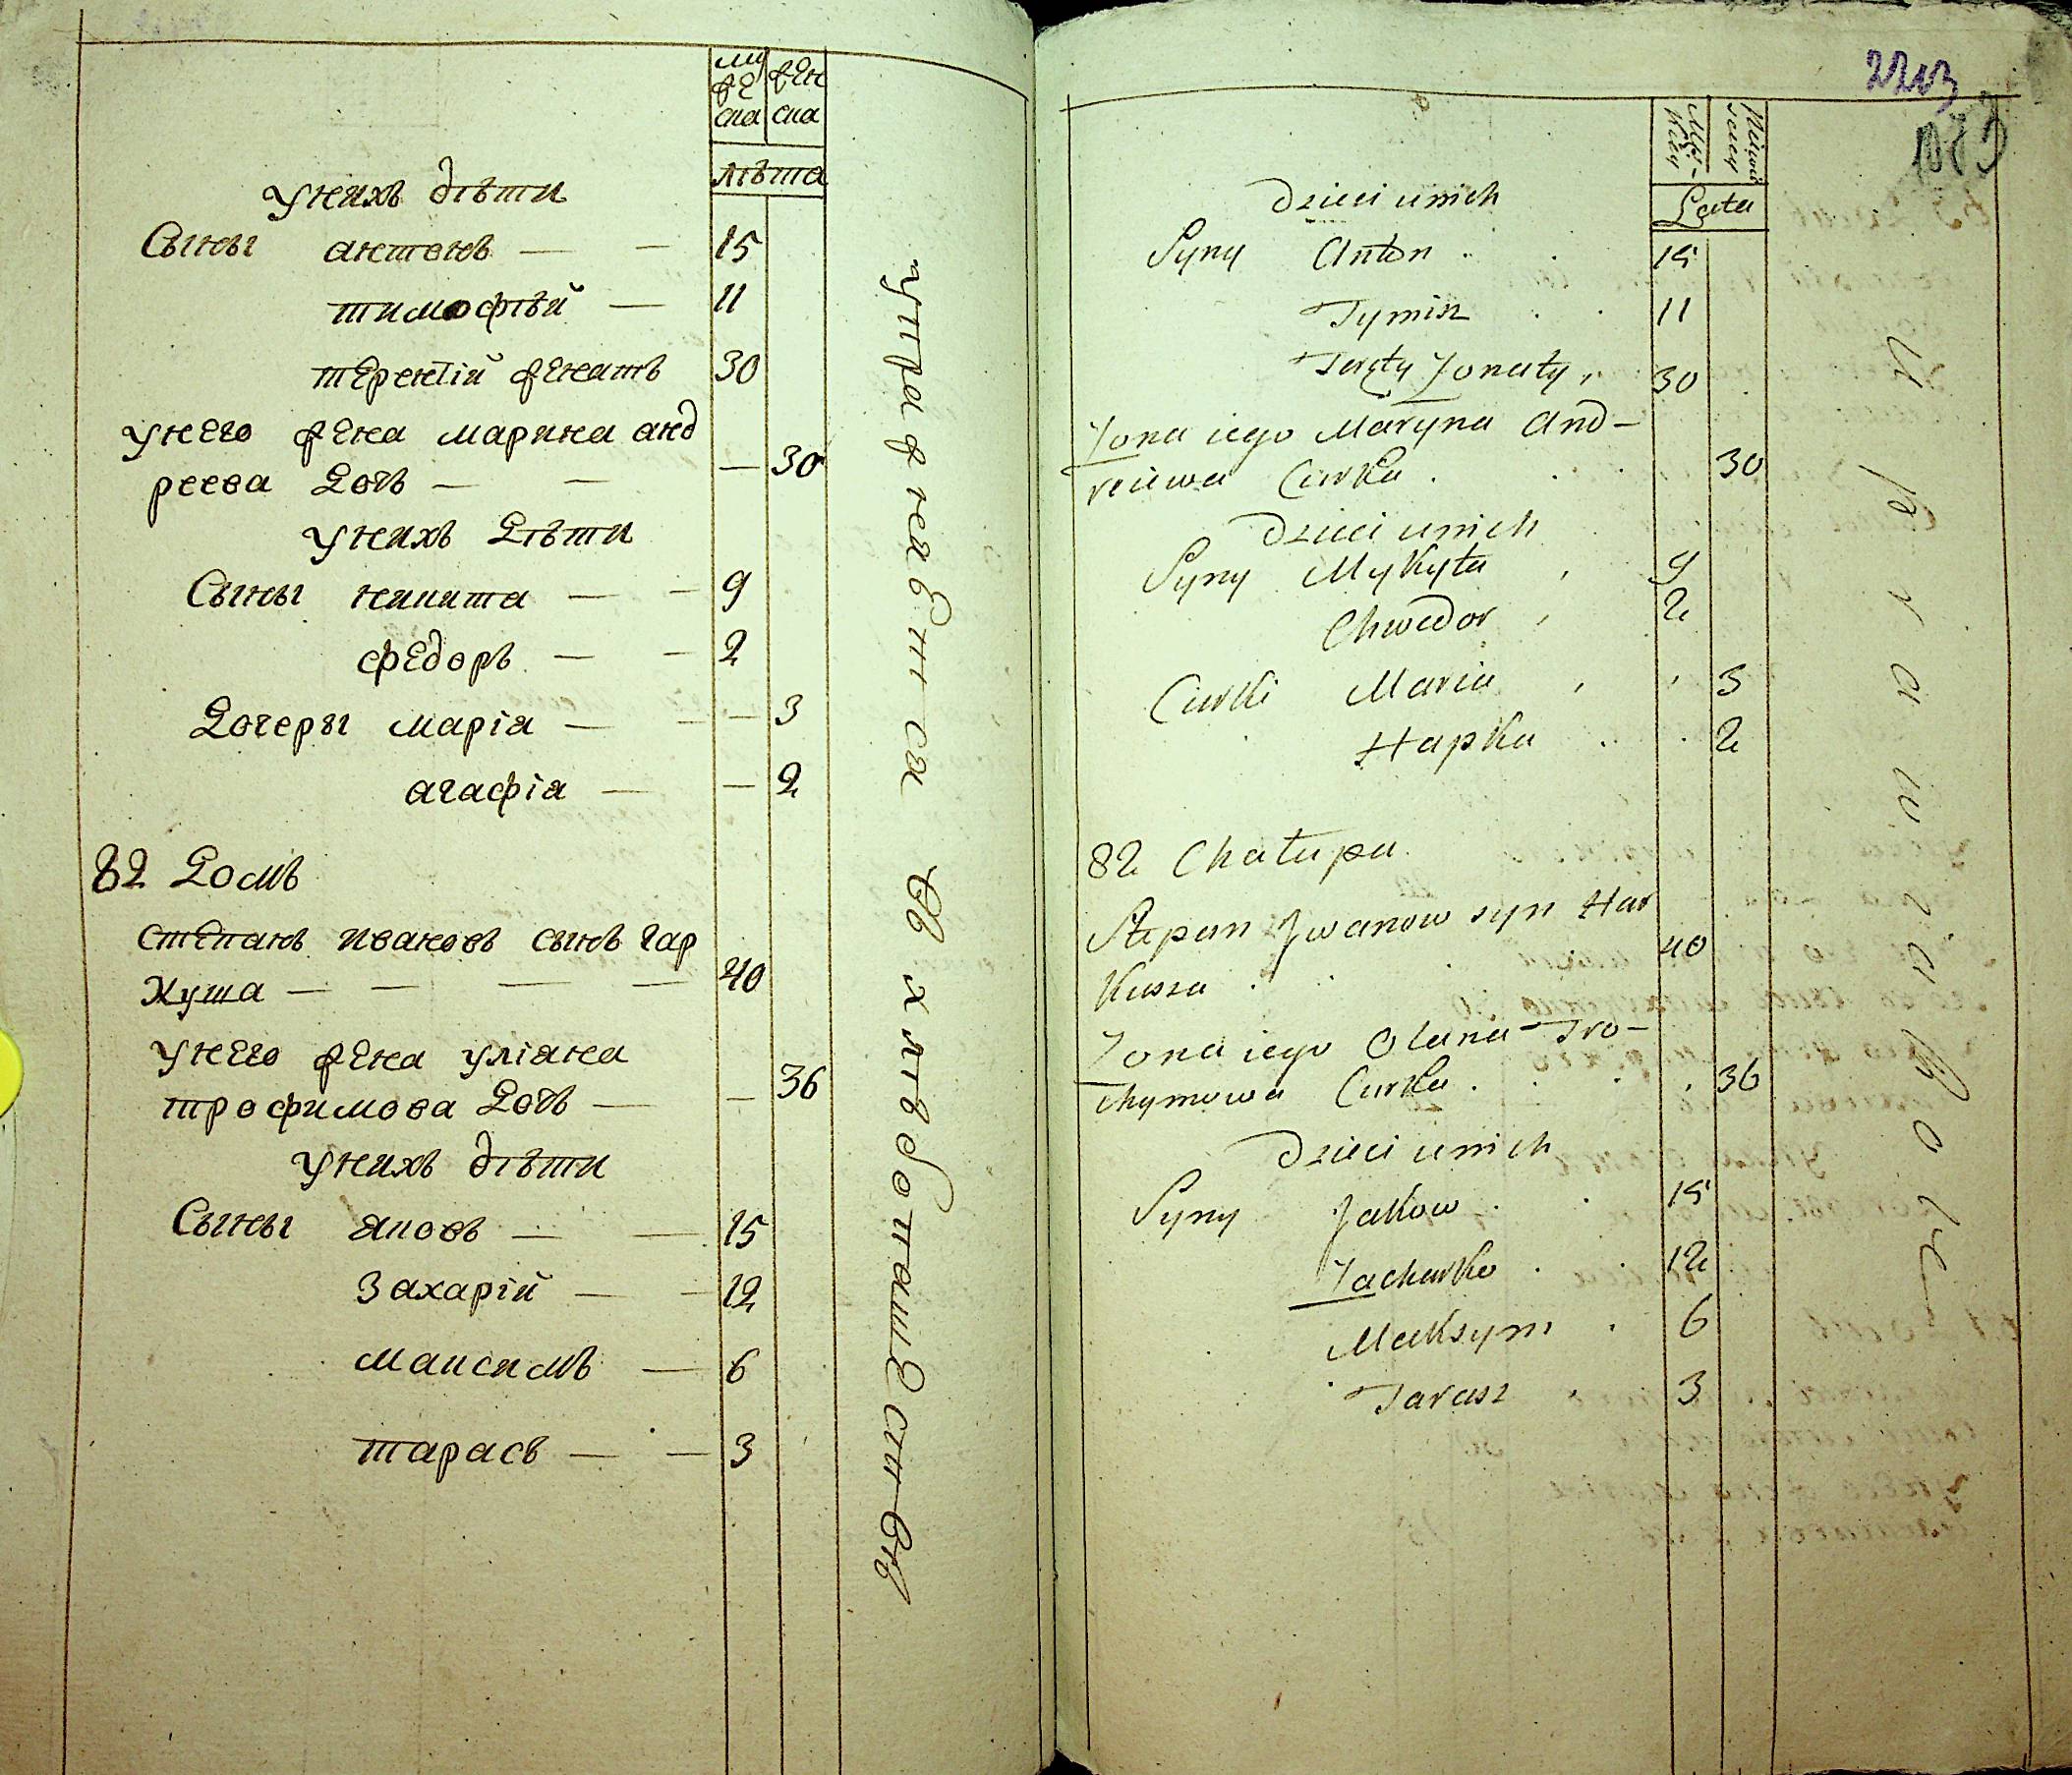 мужеска женска
лѣта
у нихъ дѣти
Сыны антонъ — — 15
тимофѣй — 11
терентiй женатъ 30
у него жена марина анд
реева дочь — — — 30
у нихъ дѣти
Сыны никита — — 9
федоръ — — 2
дочеры марiа — — — 3
агафiа — — 2
82 домъ
степанъ ивановъ сынъ гар
куша — — — — 40
у него жена улiана
трофимова дочь — — 36
у нихъ дѣти
Сыны яковъ — — 15
захарiй — — 12
максимъ — 6
тарасъ — — 3
упражняется въ хлѣбопашествѣ
2203
Męz-
kiey
Lata
Dzieci u nich
Syny Anton . . 15
Tymisz . . 11
Teręty żonaty , 30
Żona iego Maryna And-
reiewa Curka . . . 30
Dzieci u nich
Syny Mykyta , 9
Chwedor , 2
Curki Maria , , 3
Hapka .. . 2
82 Chałupa
Stepan Jwanow syn Har
kusza . . . 40
Żona iego Olana Tro-
chymowa Curka . . . 36
Dzieci u nich
Syny Jakow . . 15
Zacharko . . 12
Maksym . 6
Tarasz . 3